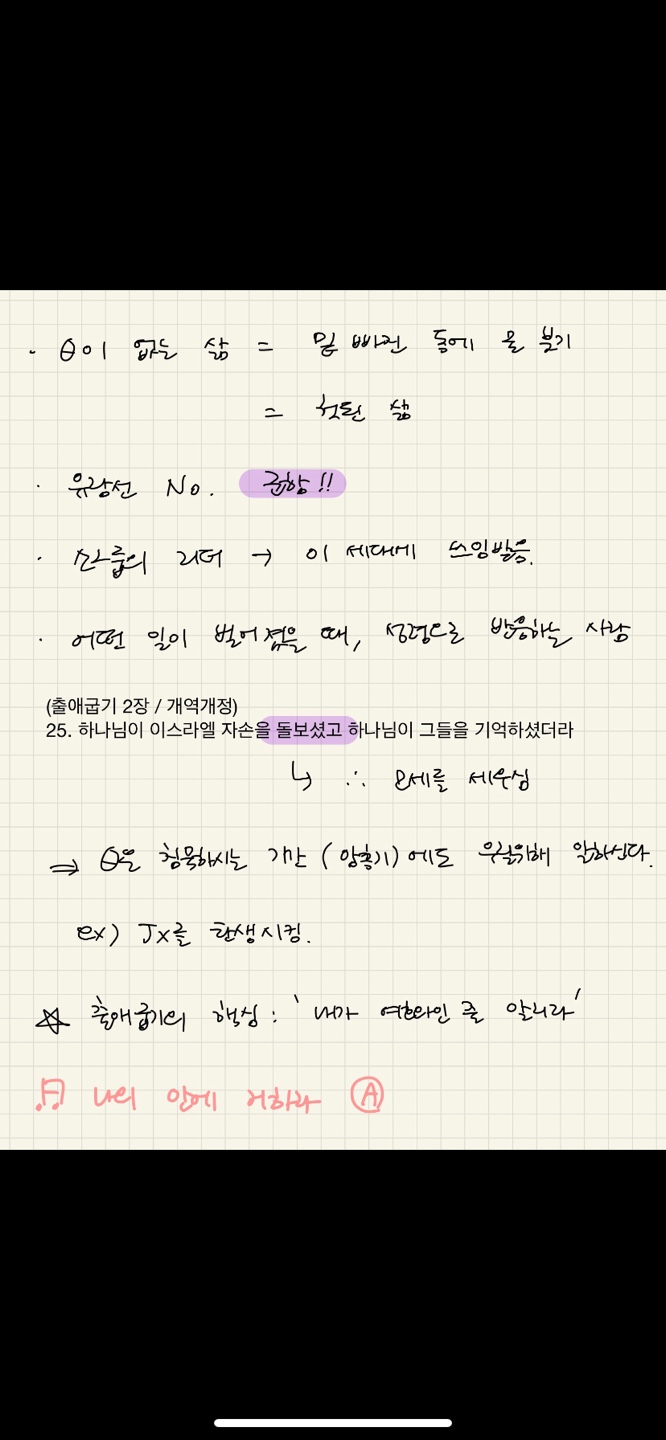 · θ이 없는 삶 = 밑 빠진 독에 물 붓기
= 헛된 삶
· 유람선 No. 군함!!
· 소그룹의 리더 → 이 세대에 쓰임받음.
· 어떤 일이 벌어졌을 때, 성령으로 반응하는 사람
(출애굽기 2장 / 개역개정)
25. 하나님이 이스라엘 자손을 돌보셨고 하나님이 그들을 기억하셨더라
↳ ∴ 모세를 세우심
⇒ θ은 침묵하시는 기간 (암흑기)에도 우릴위해 일하신다.
ex) Jx를 탄생시킴.
☆ 출애굽기의 핵심 : '내가 여호와인 줄 알리라'
♫ 나의 안에 거하라 Ⓐ